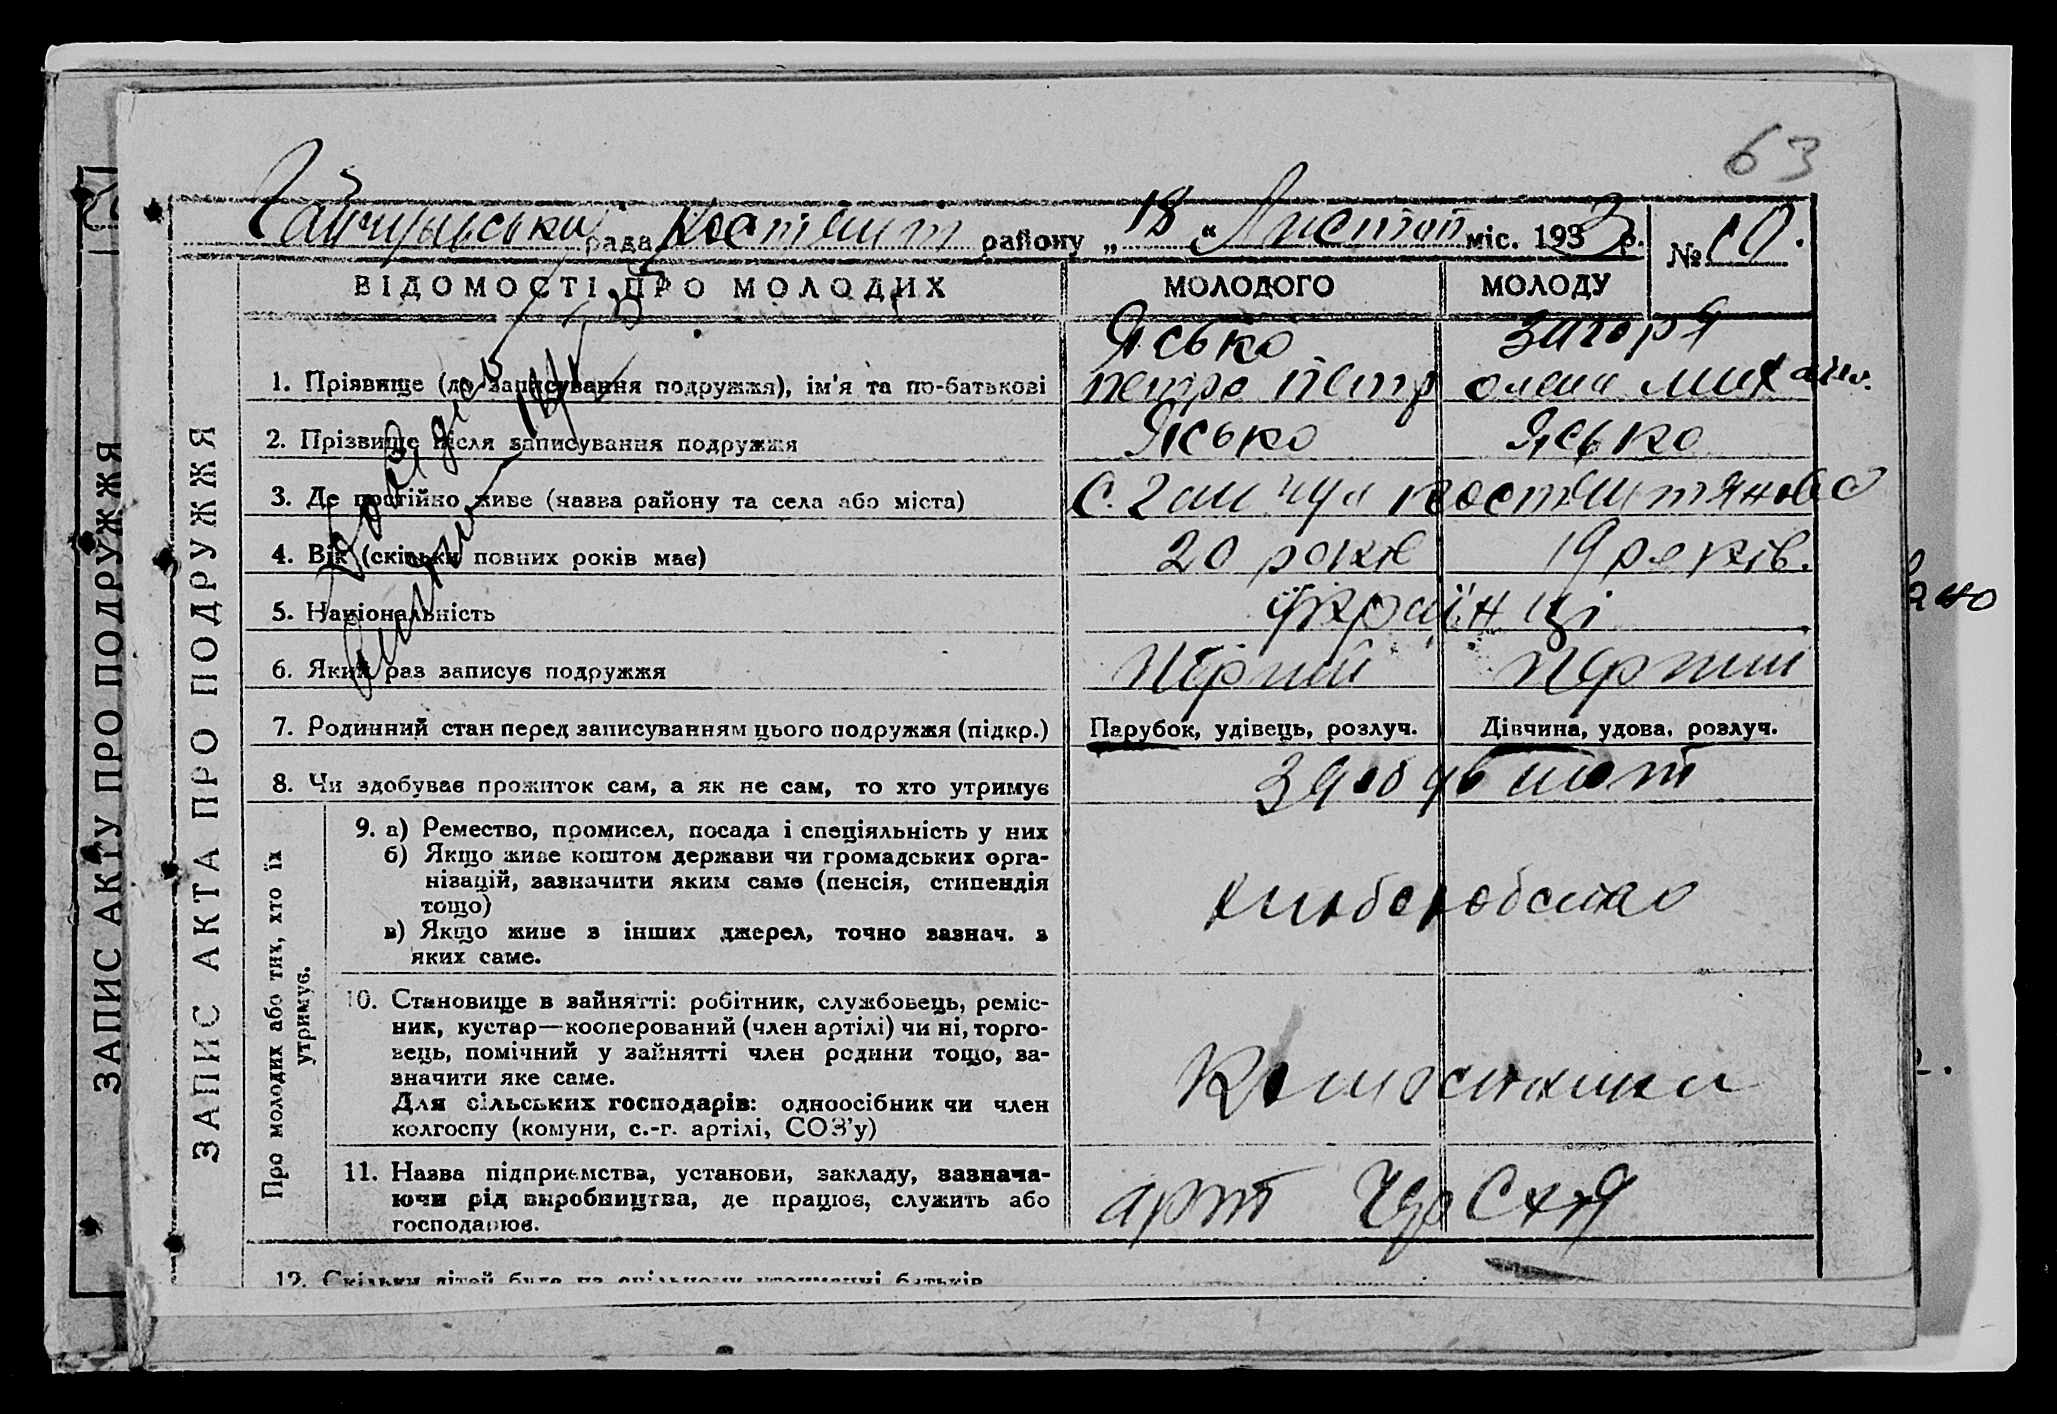 63
Гайчульська рада Костянт району „ 18 “ Листоп міс. 1933 р. № 10.
ВІДОМОСТІ ПРО МОЛОДИХ МОЛОДОГО МОЛОДУ
Ясько Загоря
1. Прізвище (до записування подружжя), ім'я та по-батькові Петро Петр Олена Михайл.
2. Прізвище після записування подружжя Ясько Ясько
3. Де постійно живе (назва району та села або міста) С. Гайчул
4. Вік (скільки повних років має) 20 років 19 років.
5. Національність Українці
6. Який раз записує подружжя Перший Перший
7. Родинний стан перед записуванням цього подружжя (підкр.) Парубок, удівець, розлуч. Дівчина, удова, розлуч.
8. Чи здобуває прожиток сам, а як не сам, то хто утримує
9. а) Ремество, промисел, посада і спеціяльність у них
б) Якщо живе коштом держави чи громадських орга-
нізацій, зазначити яким саме (пенсія, стипендія
тощо)
в) Якщо живе з інших джерел, точно зазнач. з
яких саме.
10. Становище в зайнятті: робітник, службовець, реміс-
ник, кустар—кооперований (член артілі) чи ні, торго-
вець, помічний у зайнятті член родини тощо, за-
значити яке саме.
Для сільських господарів: одноосібник чи член
колгоспу (комуни, с.-г. артілі, СОЗ'у)
11. Назва підприємства, установи, закладу, зазнача-
ючи рід виробництва, де працює, служить або
господарює.
арт
12. Скільки дітей буде на спільному утриманні батьків
Про молодих або тих, хто їх
утримує.
ЗАПИС АКТА ПРО ПОДРУЖЖЯ
ЗАПИС АКТУ ПРО ПОДРУЖЖЯ